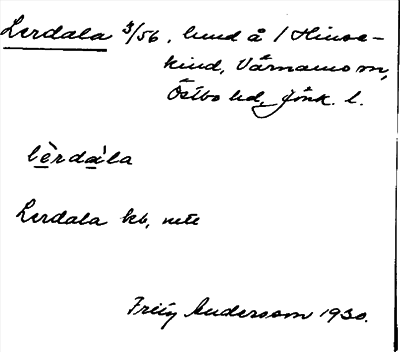 Lerdala 3/56, lund å / Hinse-
kind, Värnamo sn,
Östbo hd, Jönk. l.
lèrdàla
Lerdala kb, mtt
Fritz Andersson 1930.